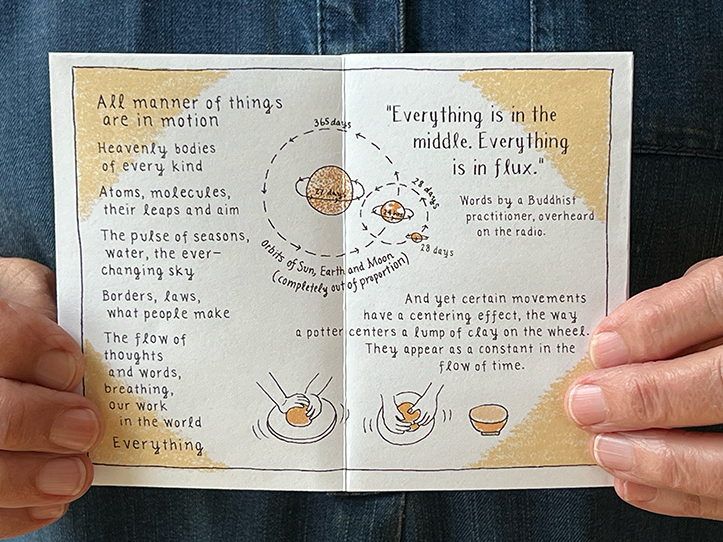 All manner of things
are in motion
Heavenly bodies
of every kind
Atoms, molecules,
their leaps and aim
The pulse of seasons,
water, the ever-
changing sky
Borders, laws,
what people make
The flow of
thoughts
and words,
breathing,
our work
in the world
Everything
365 days
27 days
28 days
24 hrs
28 days
Orbits of Sun, Earth and Moon
(completely out of proportion)
"Everything is in the
middle. Everything
is in flux."
Words by a Buddhist
practitioner, overheard
on the radio.
And yet certain movements
have a centering effect, the way
a potter centers a lump of clay on the wheel.
They appear as a constant in the
flow of time.